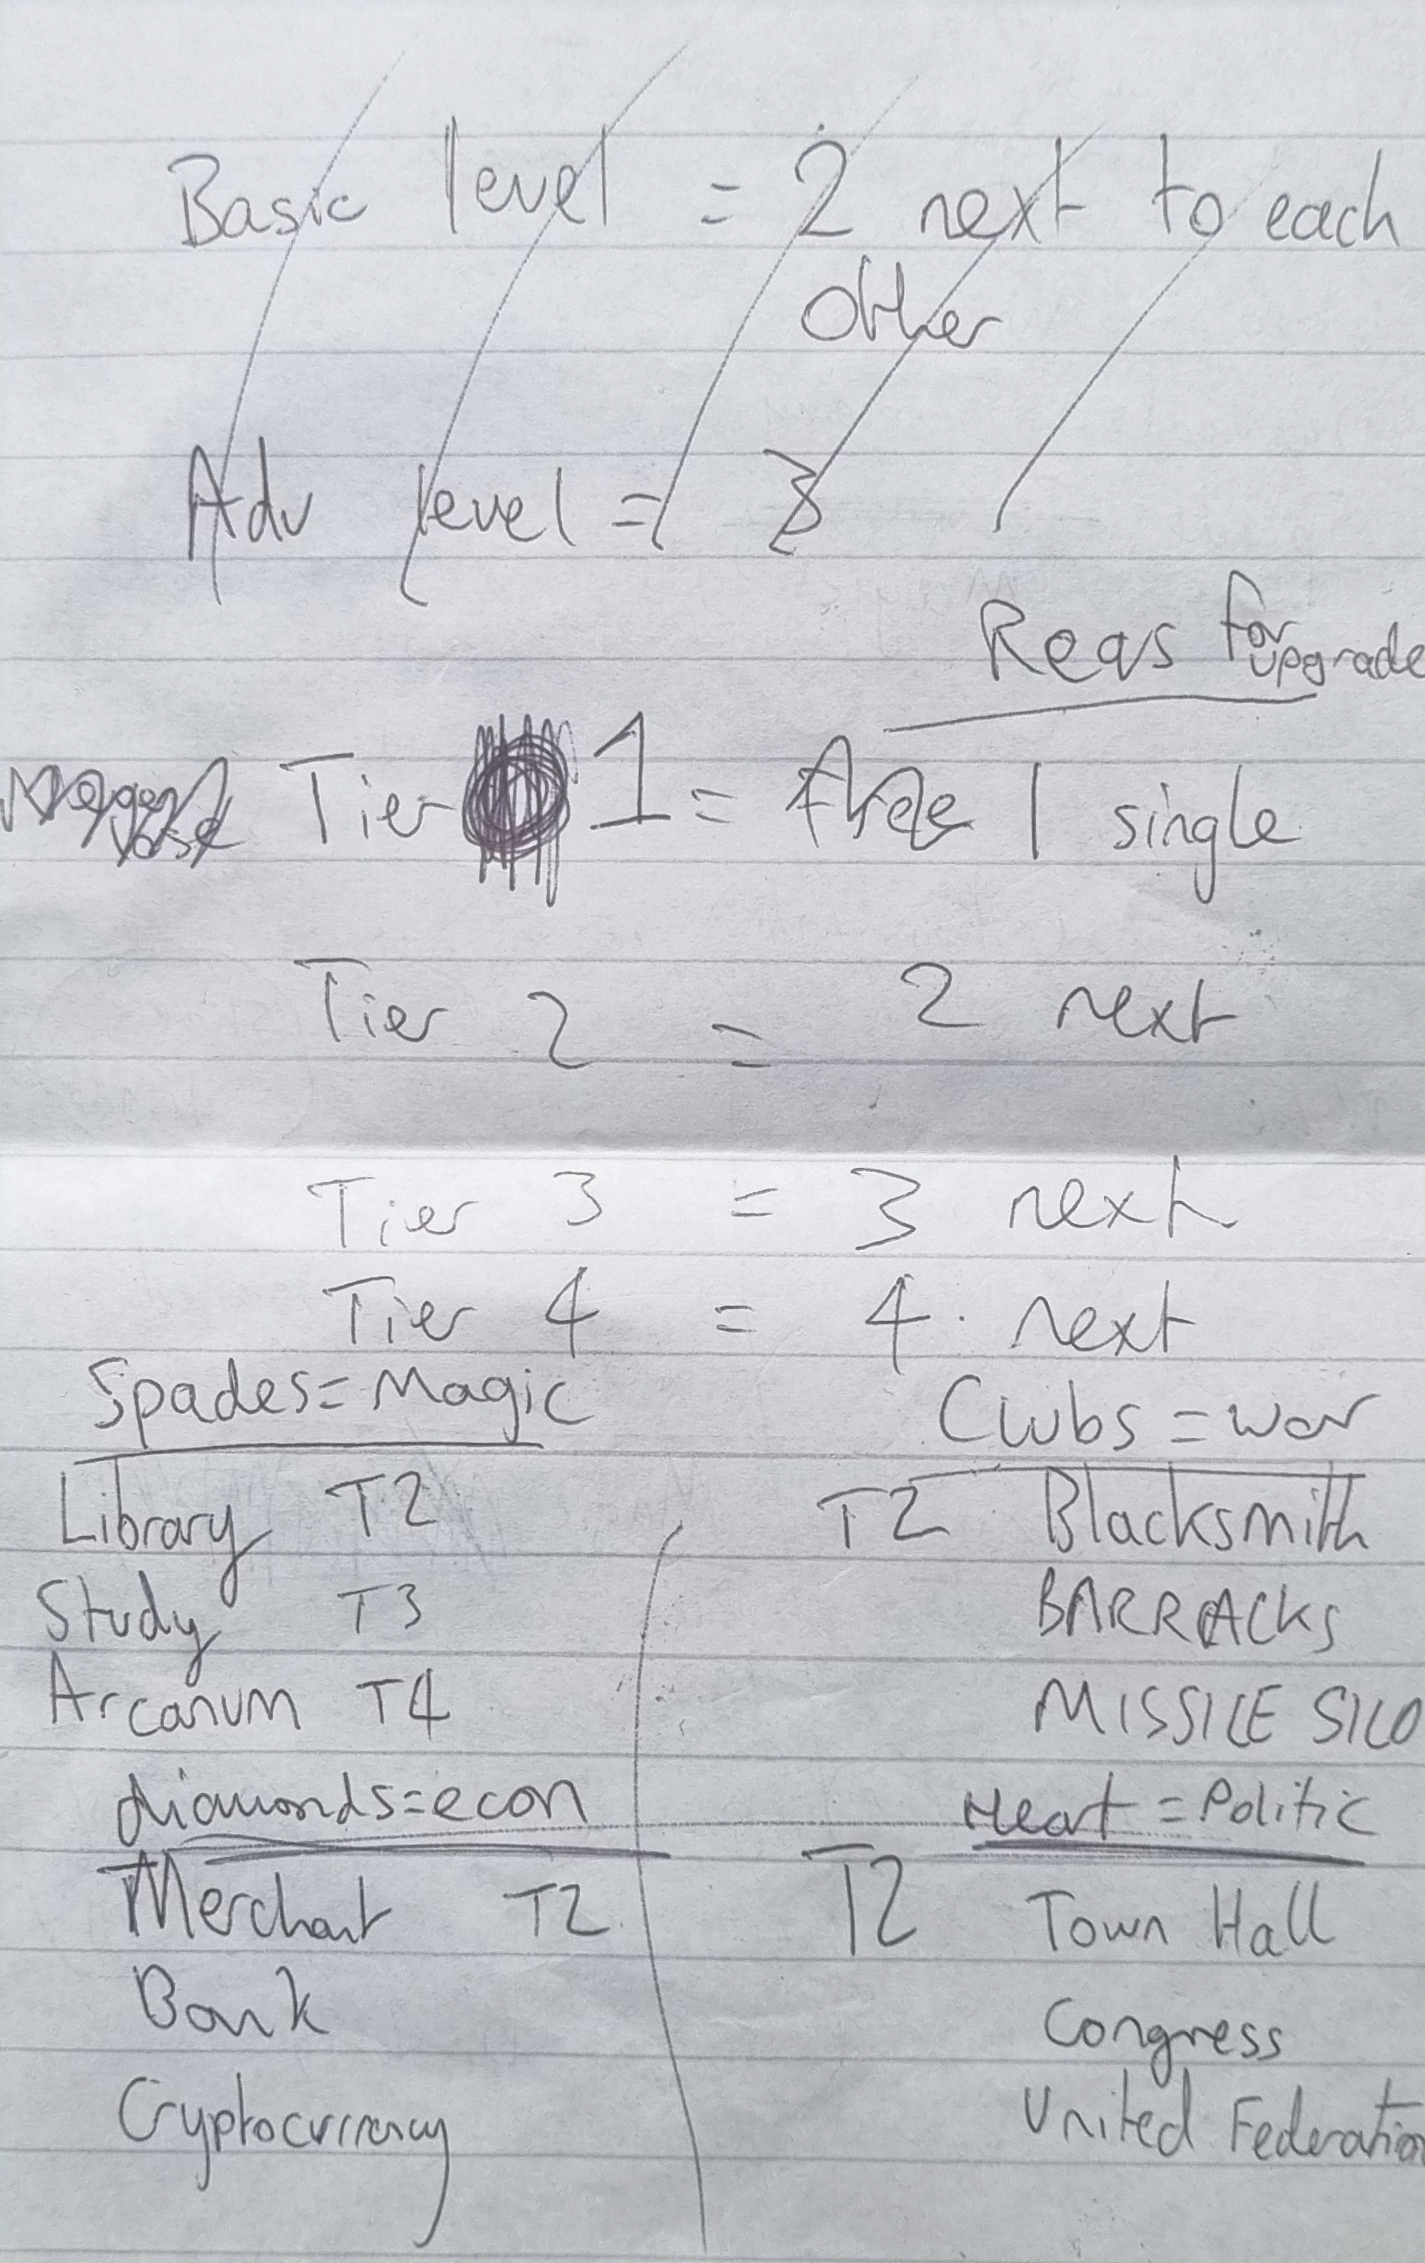 Basic level = 2 next to each
other
Adv level = 3
Reqs for upgrade
Tier 1 = free 1 single
Tier 2 = 2 next
Tier 3 = 3 next
Tier 4 = 4. next
Spades=Magic
Library T2
Study T3
Arcanum T4
diamonds=econ
Merchant T2
Bank
Cryptocurrency
Clubs = war
T2 Blacksmith
BARRACKS
MISSILE SILO
Heart = Politic
T2 Town Hall
Congress
United Federation